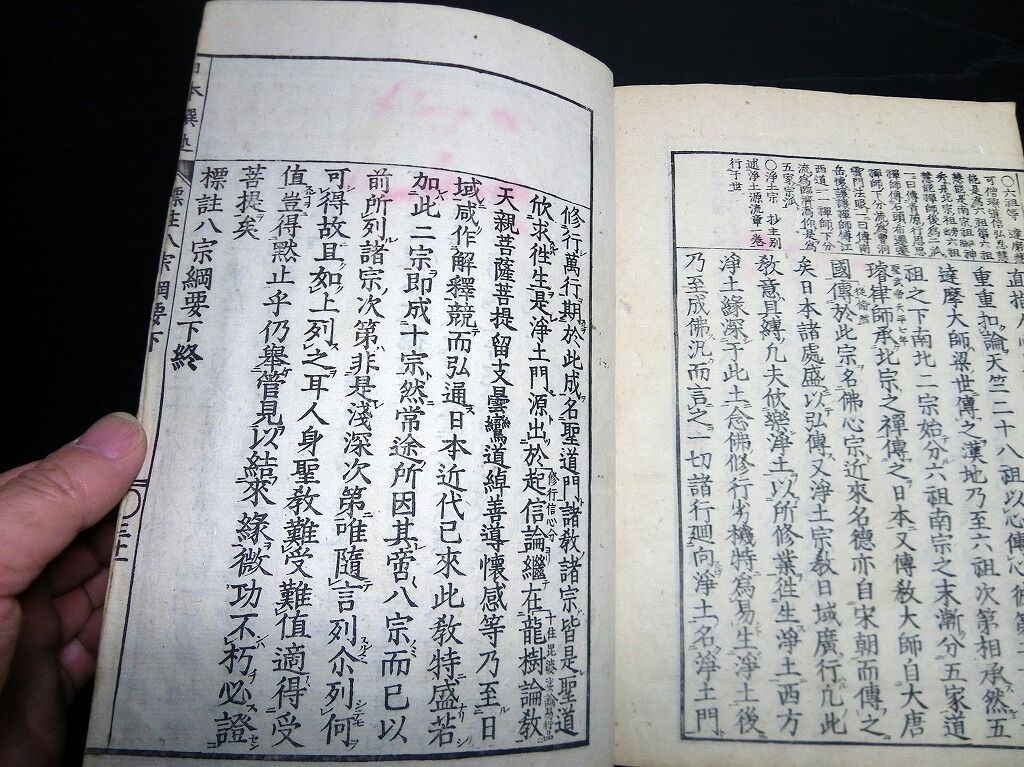 ○六祖等 達磨慧
可僧璨道信弘忍慧
能是爲六祖第六祖
慧能是南宗祖師神
秀是北宗祖師六祖
慧能禪師後爲二派
一曰傳青原行思思
禪師傳石頭布遷遷
禪師下分流爲曹洞
雲門法眼二曰傳南
岳懷讓讓禪師傳江
西道一一禪師下分
流爲臨濟潙仰是爲
五家宗派
○淨土宗 抄主別
述淨土源流章一卷
行于世
重重扣論天竺二十八祖以心傳心彼第
達摩大師梁世傳之漢地乃至六祖次第相承然五
祖之下南北二宗始分六祖南宗之末漸分五家道
璿律師承北宗之禪傳之日本又傳敎大師自大唐
國傳於此宗名佛心宗近來名德亦自宋朝而傳之
矣日本諸處盛以弘傳又淨土宗敎日域廣行凡此
敎意具縛凡夫欣樂淨土以所修業往生淨土西方
淨土緣深于此土念佛修行劣機特爲易生淨土後
乃至成佛汎而言之一切諸行廻向淨土名淨土門
修行萬行期於此成名聖道門諸敎諸宗皆是聖道
欣求往生是淨土門源出於起信論繼在龍樹論敎
修行信心分
十住毘婆娑論易行品
天親菩薩菩提留支曇鸞道綽善導懷感等乃至日
域咸作解釋競而弘通日本近代已來此敎特盛若
加此二宗即成十宗然常途所因其啻八宗而已以
前所列諸宗次第非是淺深次第唯隨言列尒列何
可得故且如上列之耳人身聖敎難受難值適得受
值豈得默止乎仍擧管見以結來緣微功不朽必證
菩提矣
標註八宗綱要下終
標註八宗綱要下